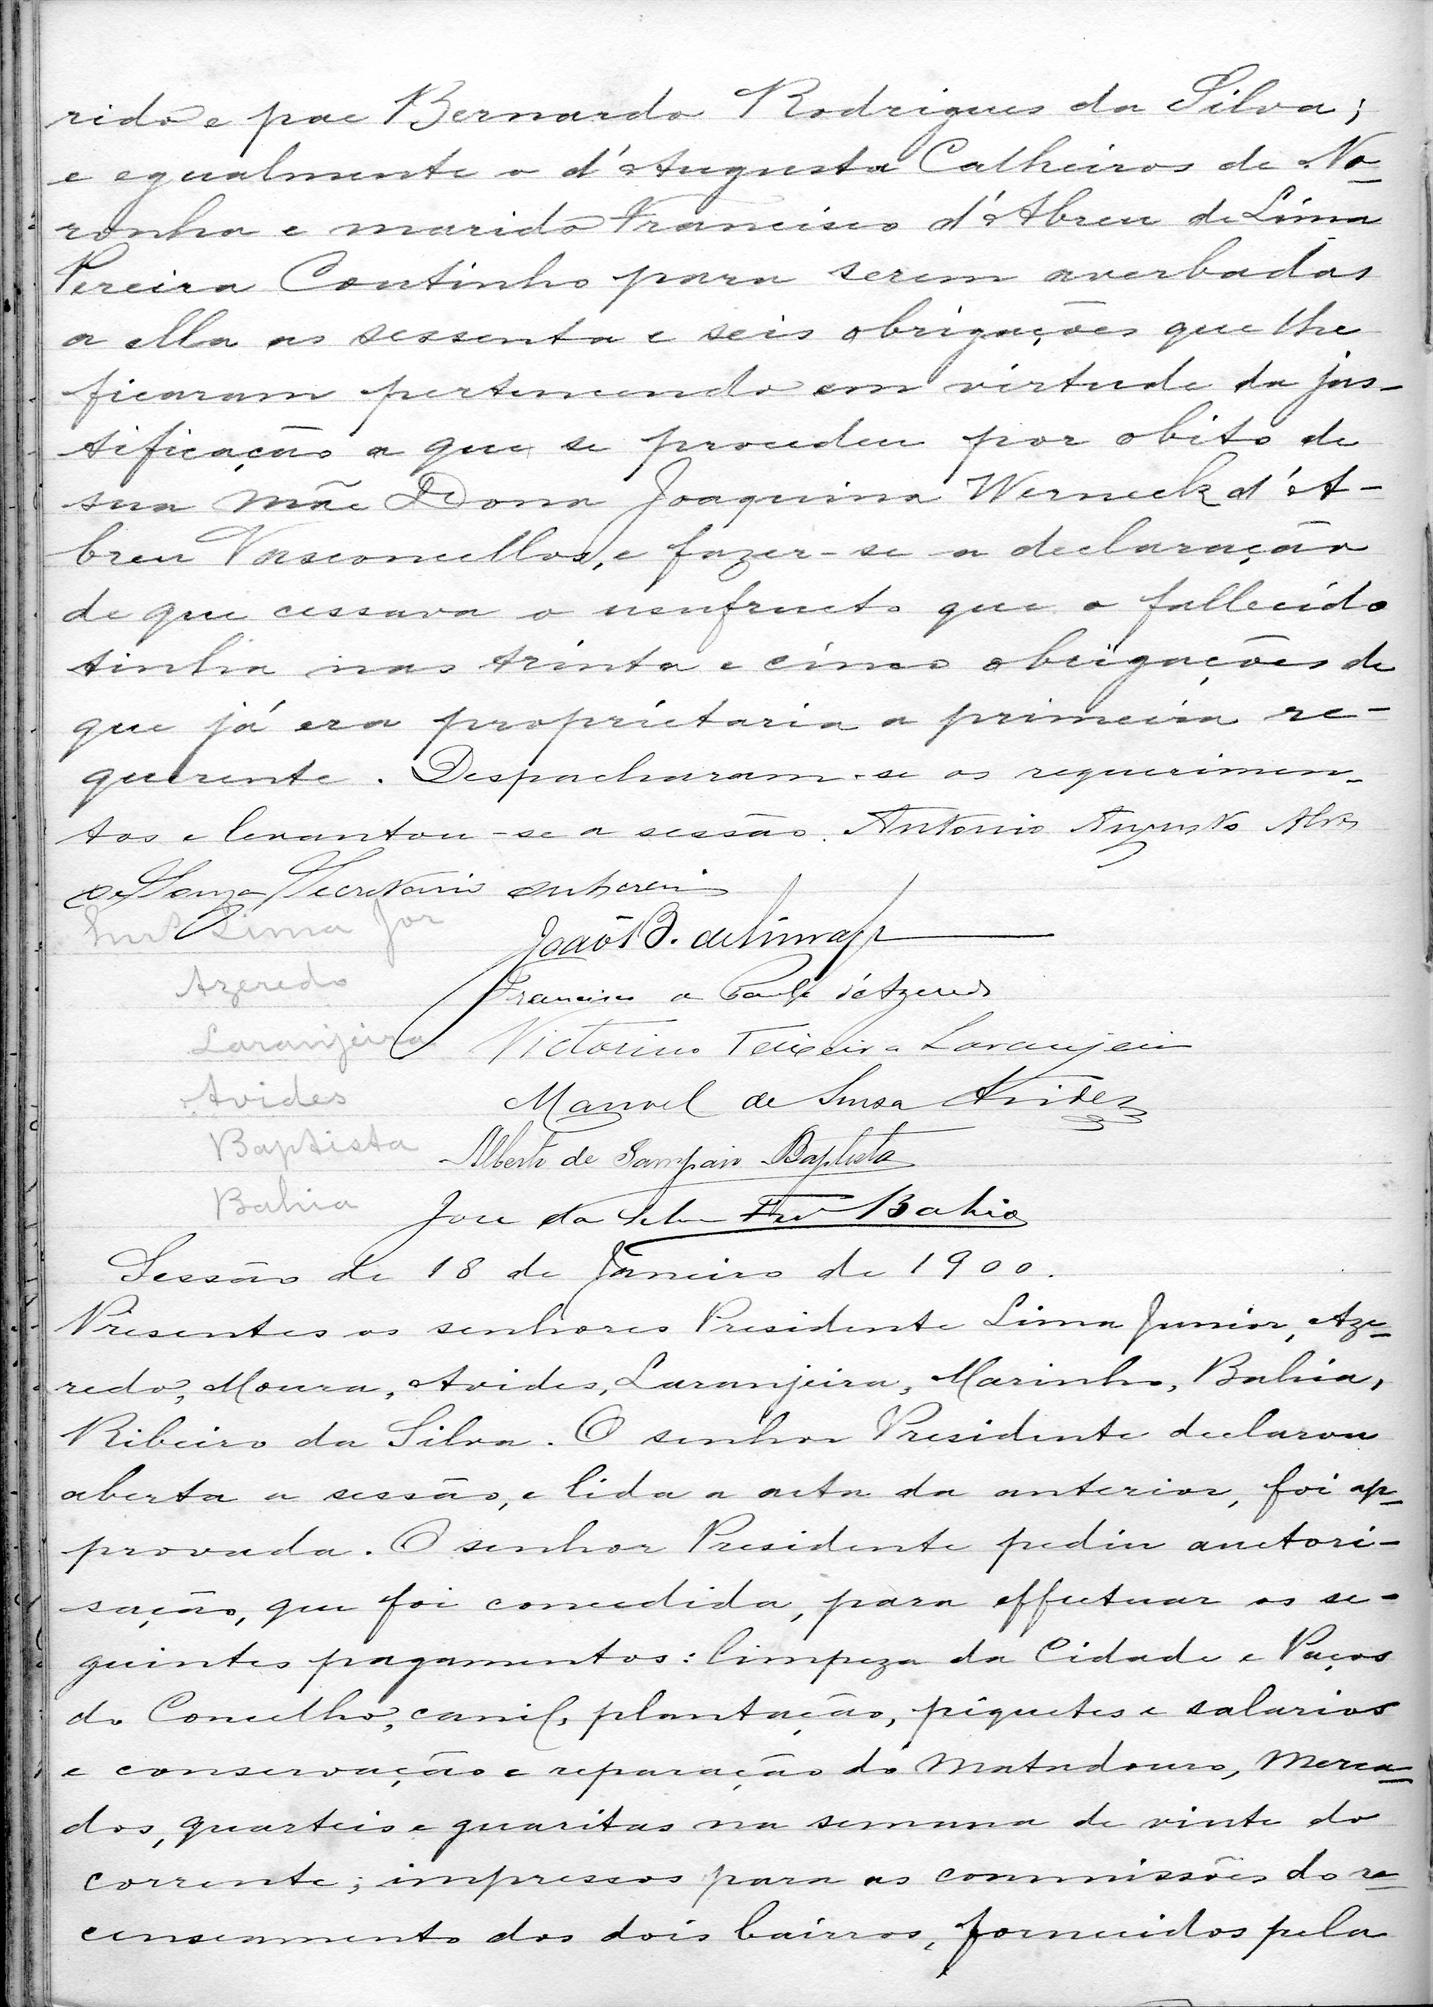 rido e pae Bernardo Rodrigues da Silva;
e egualmente o d'Augusta Calheiros de No-
ronha e marido Francisco d'Abreu de Lima
Pereira Coutinho para serem averbadas
a ella as sessenta e seis obrigações que lhe
ficaram pertencendo em virtude da jus-
tificação a que se procedeu por obito de
sua mãe Dona Joaquina Werneck d'A-
breu Vasconcellos, e fazer-se a declaração
de que cessava o usufructo que o fallecido
tinha nas trinta e cinco obrigações de
que já era proprietaria a primeira re-
querente. Despacharam-se os requerimen-
tos e levantou-se a sessão. Antonio Augusto Alves
de Souza Secretario subscrevi
Lima Jor João B. de Lima Jr
Azeredo Francisco de Paula d'Azeredo
Laranjeira Victorino Teixeira Laranjeira
Avides Manoel de Sousa Avides
Baptista Alberto de Sampaio Baptista
Bahia Jose da Silva Bahia
Sessão de 18 de Janeiro de 1900.
Presentes os senhores Presidente Lima Junior, Aze-
redo, Moura, Avides, Laranjeira, Marinho, Bahia,
Ribeiro da Silva. O senhor Presidente declarou
aberta a sessão, e lida a acta da anterior, foi ap-
provada. O senhor Presidente pediu auctori-
sação, que foi concedida, para effectuar os se-
guintes pagamentos: limpeza da Cidade e Paços
do Concelho, canil, plantação, piquetes e salarios
e conservação e reparação do Matadouro, Merca-
dos, quarteis e guaritas na semana de vinte do
corrente; impressos para as commissões do re-
censeamento dos dois bairros, fornecidos pela